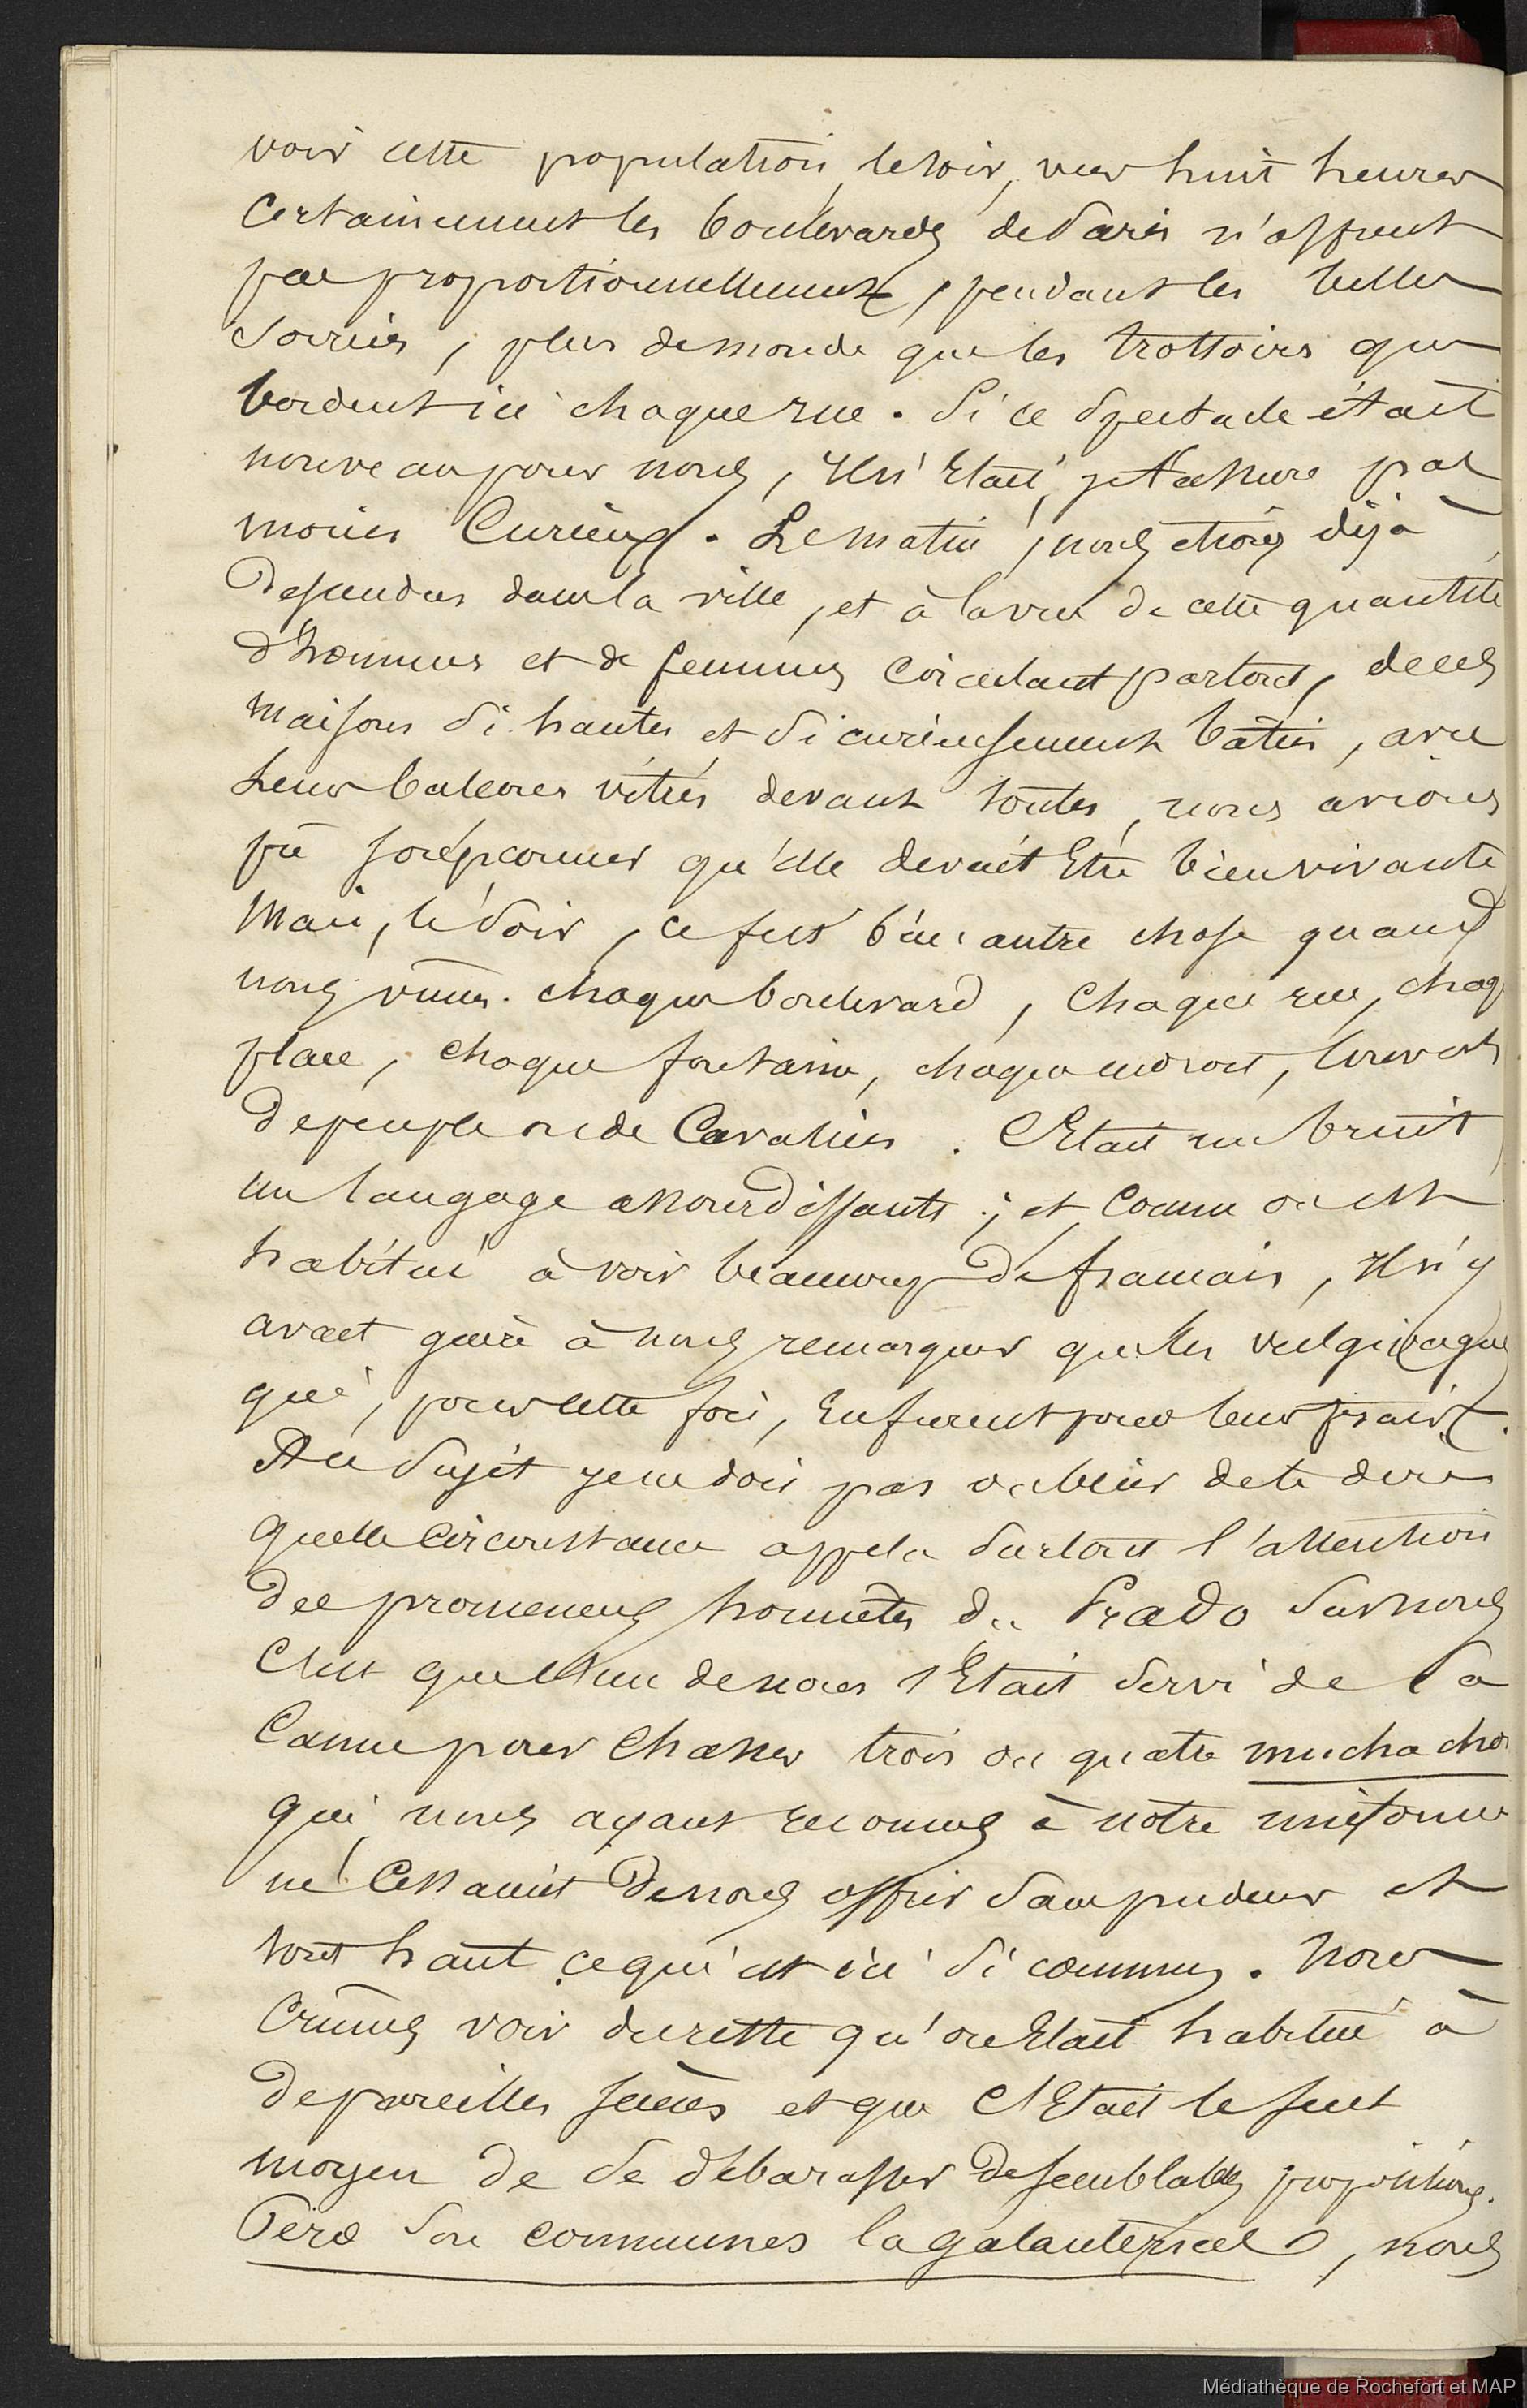 voir cette population, le soir, vers huit heures
Certainement les boulevards de Paris n'offrent
pas proportionnellement, pendant les belles
Soirées, plus de monde que les trottoirs qui
bordent ici chaque rue. Si ce Spectacle était
nouveau pour nous, Il n'Etait, je t'assure pas
moins Curieux. Le matin, nous étions déjà
Descendus dans la ville, et à la vue de cette quantité
d'hommes et de femmes Circulant partout, de ces
maisons Si hautes et Si curieusement bâties, avec
Leurs balcons vitrés devant toutes, nous avions
pû soupçonner qu'elle devait Etre bien vivante
Mais, le Soir, ce fut bien autre chose quand
nous vîmes chaque boulevard, Chaque rue, chaq
place, chaque fontaine, chaque endroit, Couverts
de peuple ou de Cavaliers. C'Etait un bruit
un langage assourdissants ; et Comme on est
habitué à voir beaucoup de français, Il n'y
avait guère à nous remarquer que les vulgivagues
qui, pour cette fois, En furent pour leurs frais.
Au Sujet je ne dois pas oublier de te dire
quelle Circonstance appela Surtout l'attention
des promeneurs honnêtes du Prado Sur nous
C'est que l'un de nous s'Etait Servi de Sa
Canne pour Chasser trois ou quatre muchachos
qui nous ayant reconnus à notre uniforme
ne Cessaient De nous offrir Sans pudeur et
tout haut ce qui est ici Si commun. Nous
Crûmes voir du reste qu'on Etait habitué à
De pareilles scènes et que C'Etait le seul
moyen de Se débarasser De semblables propositions.
Pero Son communes la galanterias, nous
Médiathèque de Rochefort et MAP